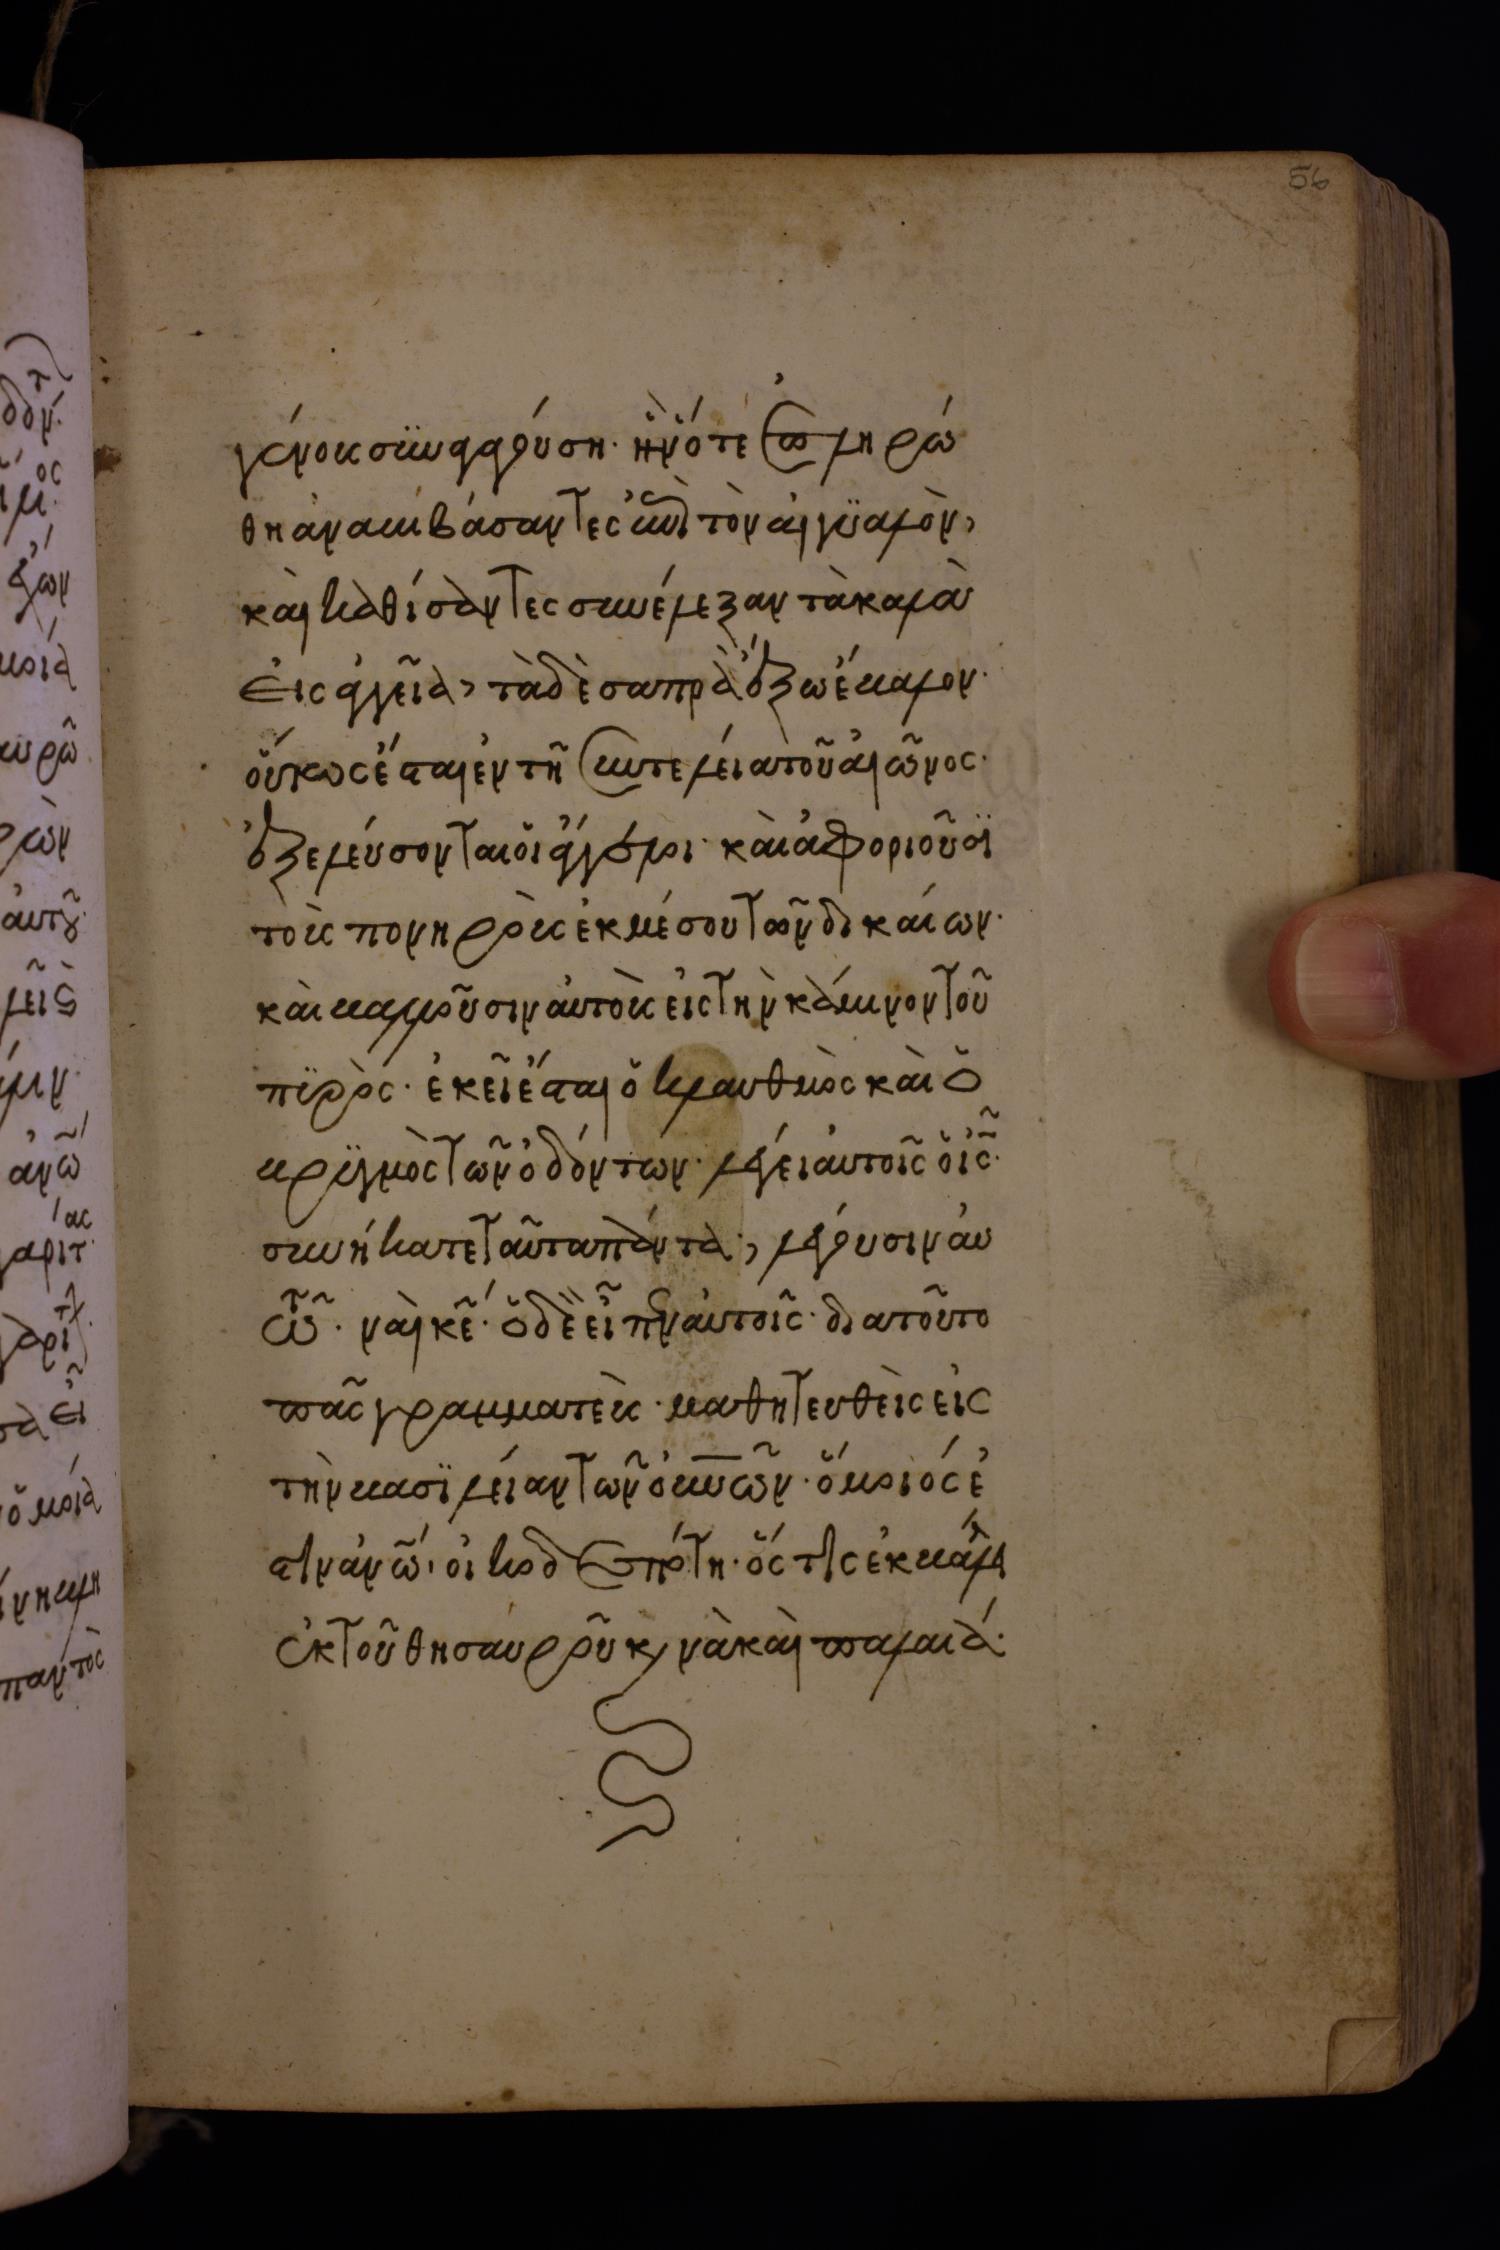 56
γένους συναγαγούση· ἣν ὅτε ἐπληρώ
θη ἀναβιβάσαντες ἐπὶ τὸν αἰγϊαλὸν,
καὶ καθίσαντες συνέλεξαν τὰ καλὰ
εἰς ἀγγεῖα, τὰ δὲ σαπρὰ ἔξω ἔβαλον·
οὕτως ἔσται ἐν τῆ συντελεία τοῦ αἰῶνος·
ἐξελεύσονται οἱ ἄγγελοι· καὶ ἀφοριοῦσϊ
τοὺς πονηροὺς ἐκ μέσου τῶν δικαίων·
καὶ βαλοῦσιν αὐτοὺς εἰς τὴν κάμινον τοῦ
πϋρὸς· ἐκεῖ ἔσται ὁ κλαυθμὸς καὶ ὁ
βρϋγμὸς τῶν ὀδόντων· λέγει αὐτοῖς ὁ ις·
συνήκατε ταῦτα πάντα, λέγουσιν αὐ
τῶ· ναὶ κε· ὁ δὲ εἶπεν αὐτοῖς· διατοῦτο
πᾶς γραμματεὺς μαθητευθεὶς εἰς
τὴν βασϊλείαν τῶν οὐνῶν· ὅμοιός ἐ
στιν ἀνω οἰκοδεσπότη· ὅστις ἐκβάλλει
ἐκ τοῦ θησαυροῦ καινὰ καὶ παλαιά·